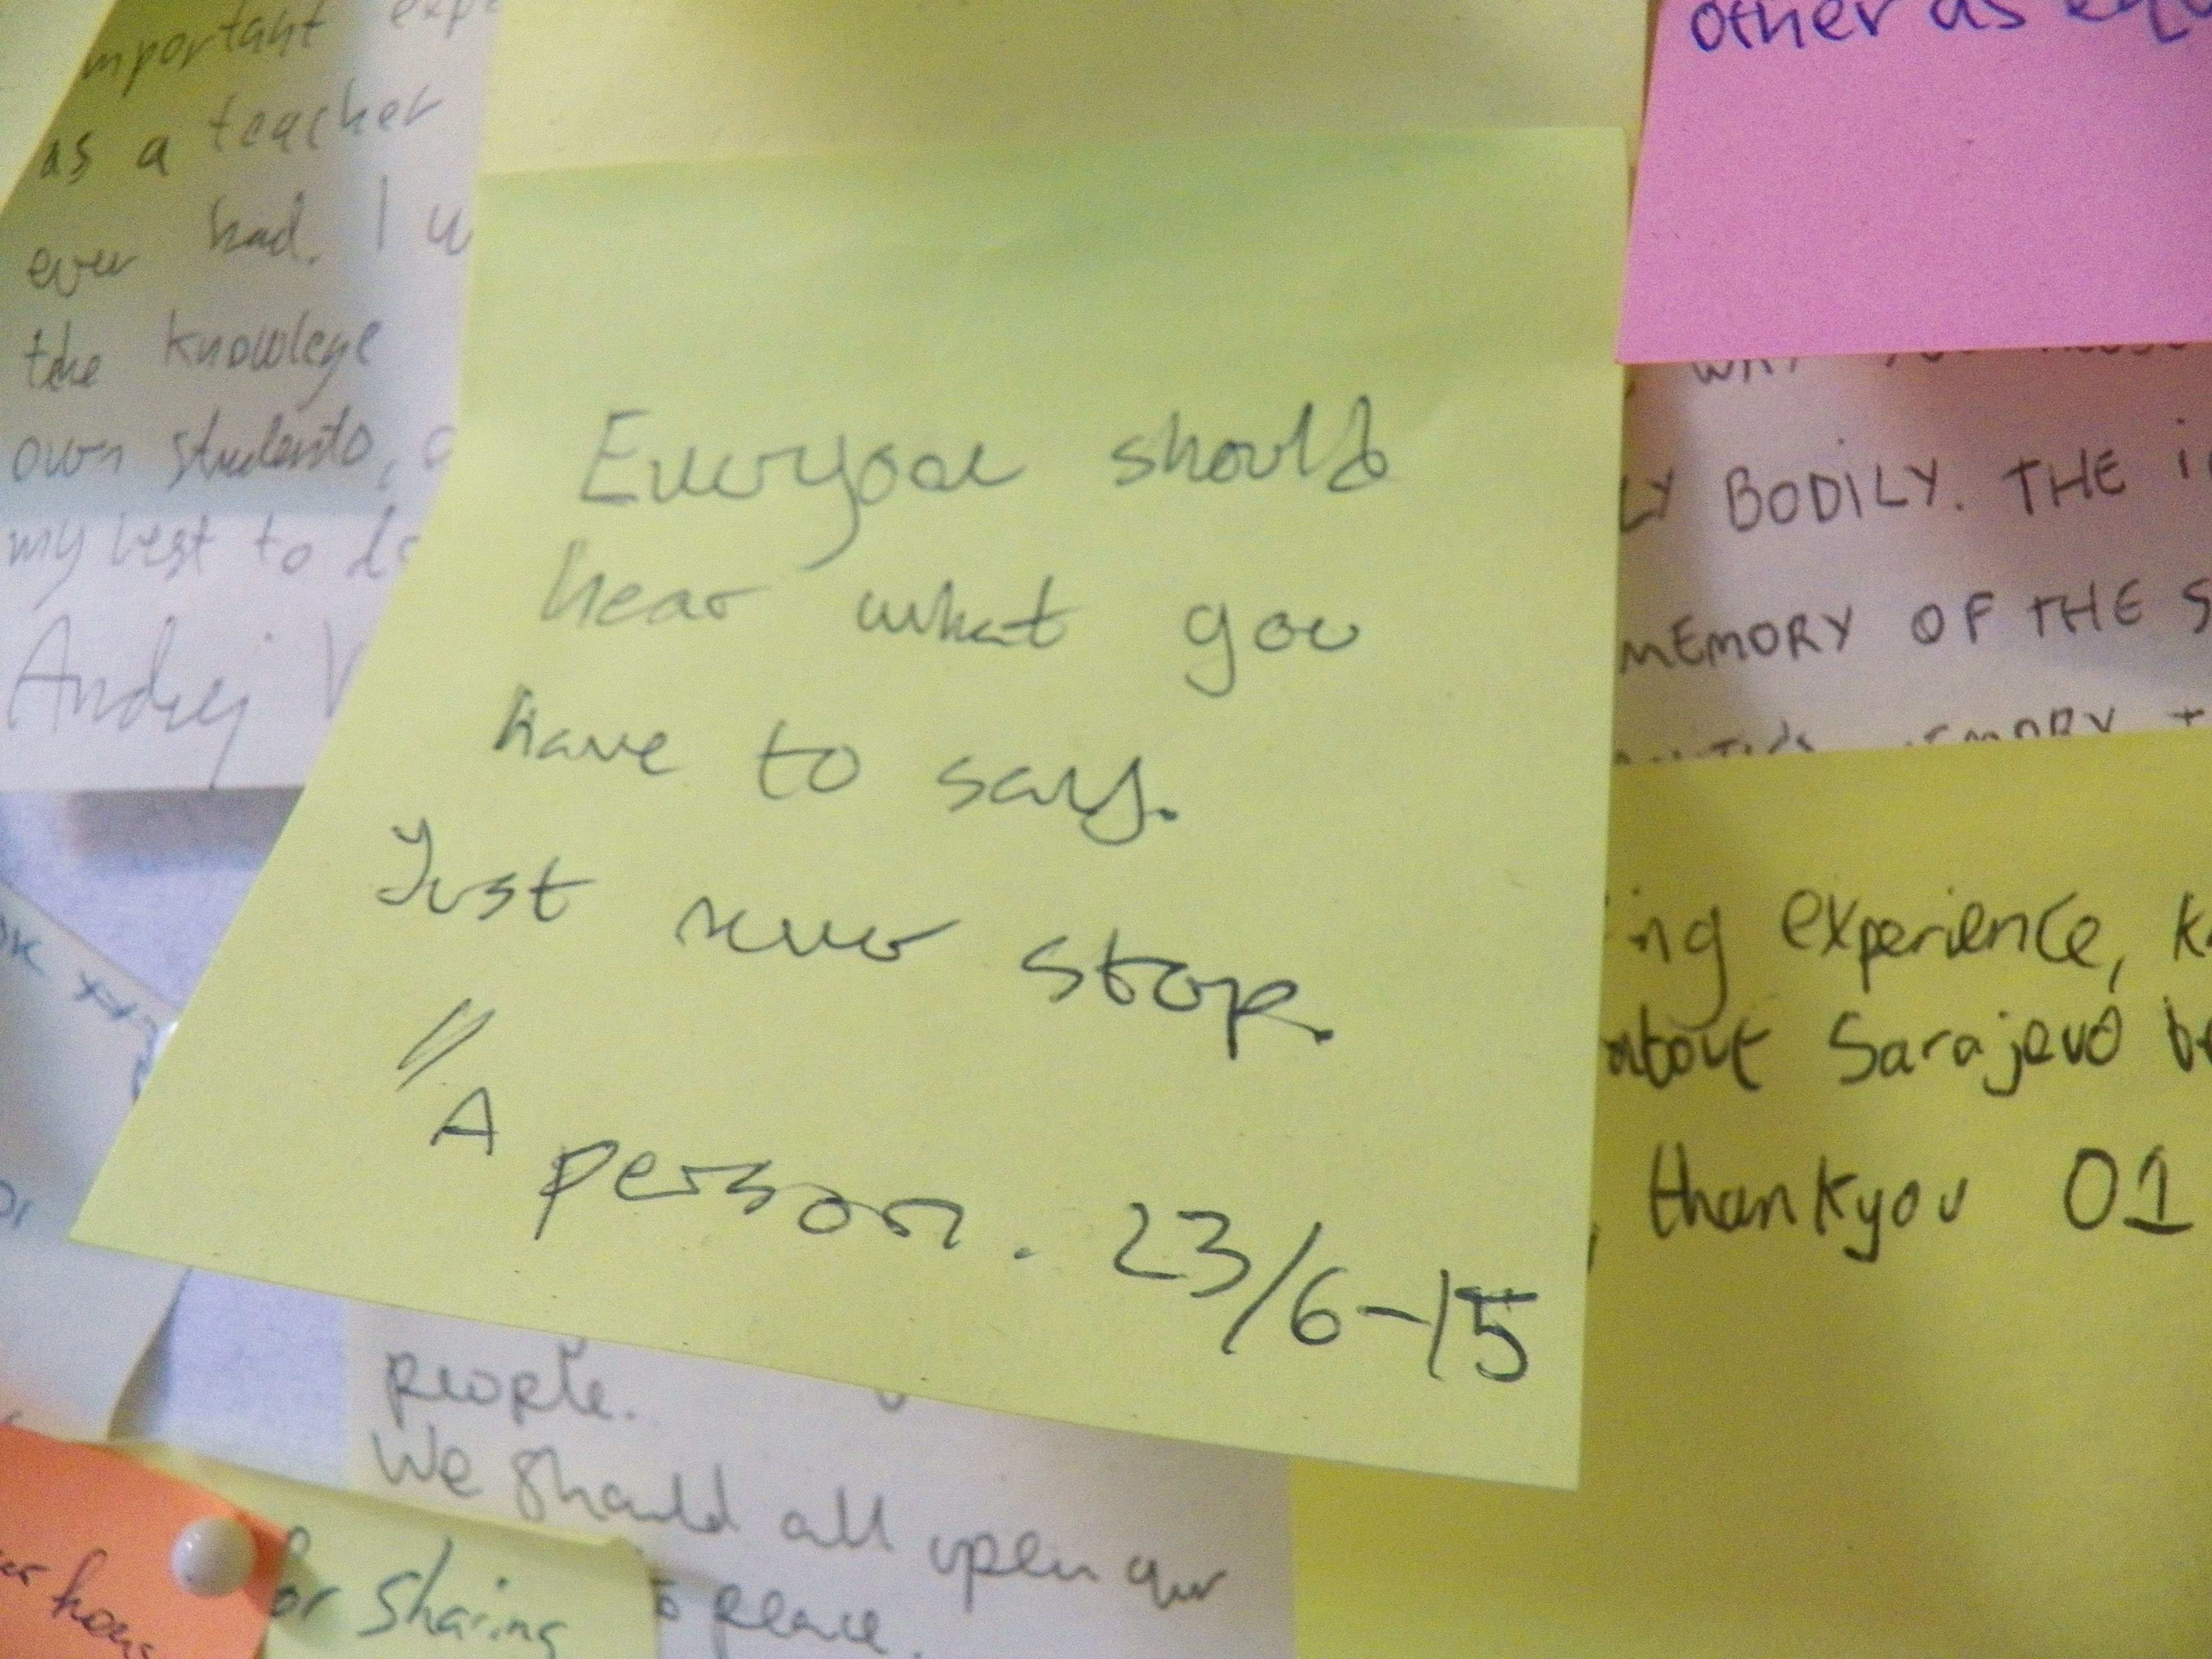 important exp
as a teacher
ever had. I w
the knowlege
own students,
my best to do
Andrej V
other as equ
Everyone should
hear what you
have to say.
Just never stop.
// A person. 23/6-15
WHAT YOU
LY BODILY. THE
MEMORY OF THE S
MEMORY +
ing experience, k
about Sarajevo b
, thankyou 01
people.
We should all open our
to peace.
for sharing